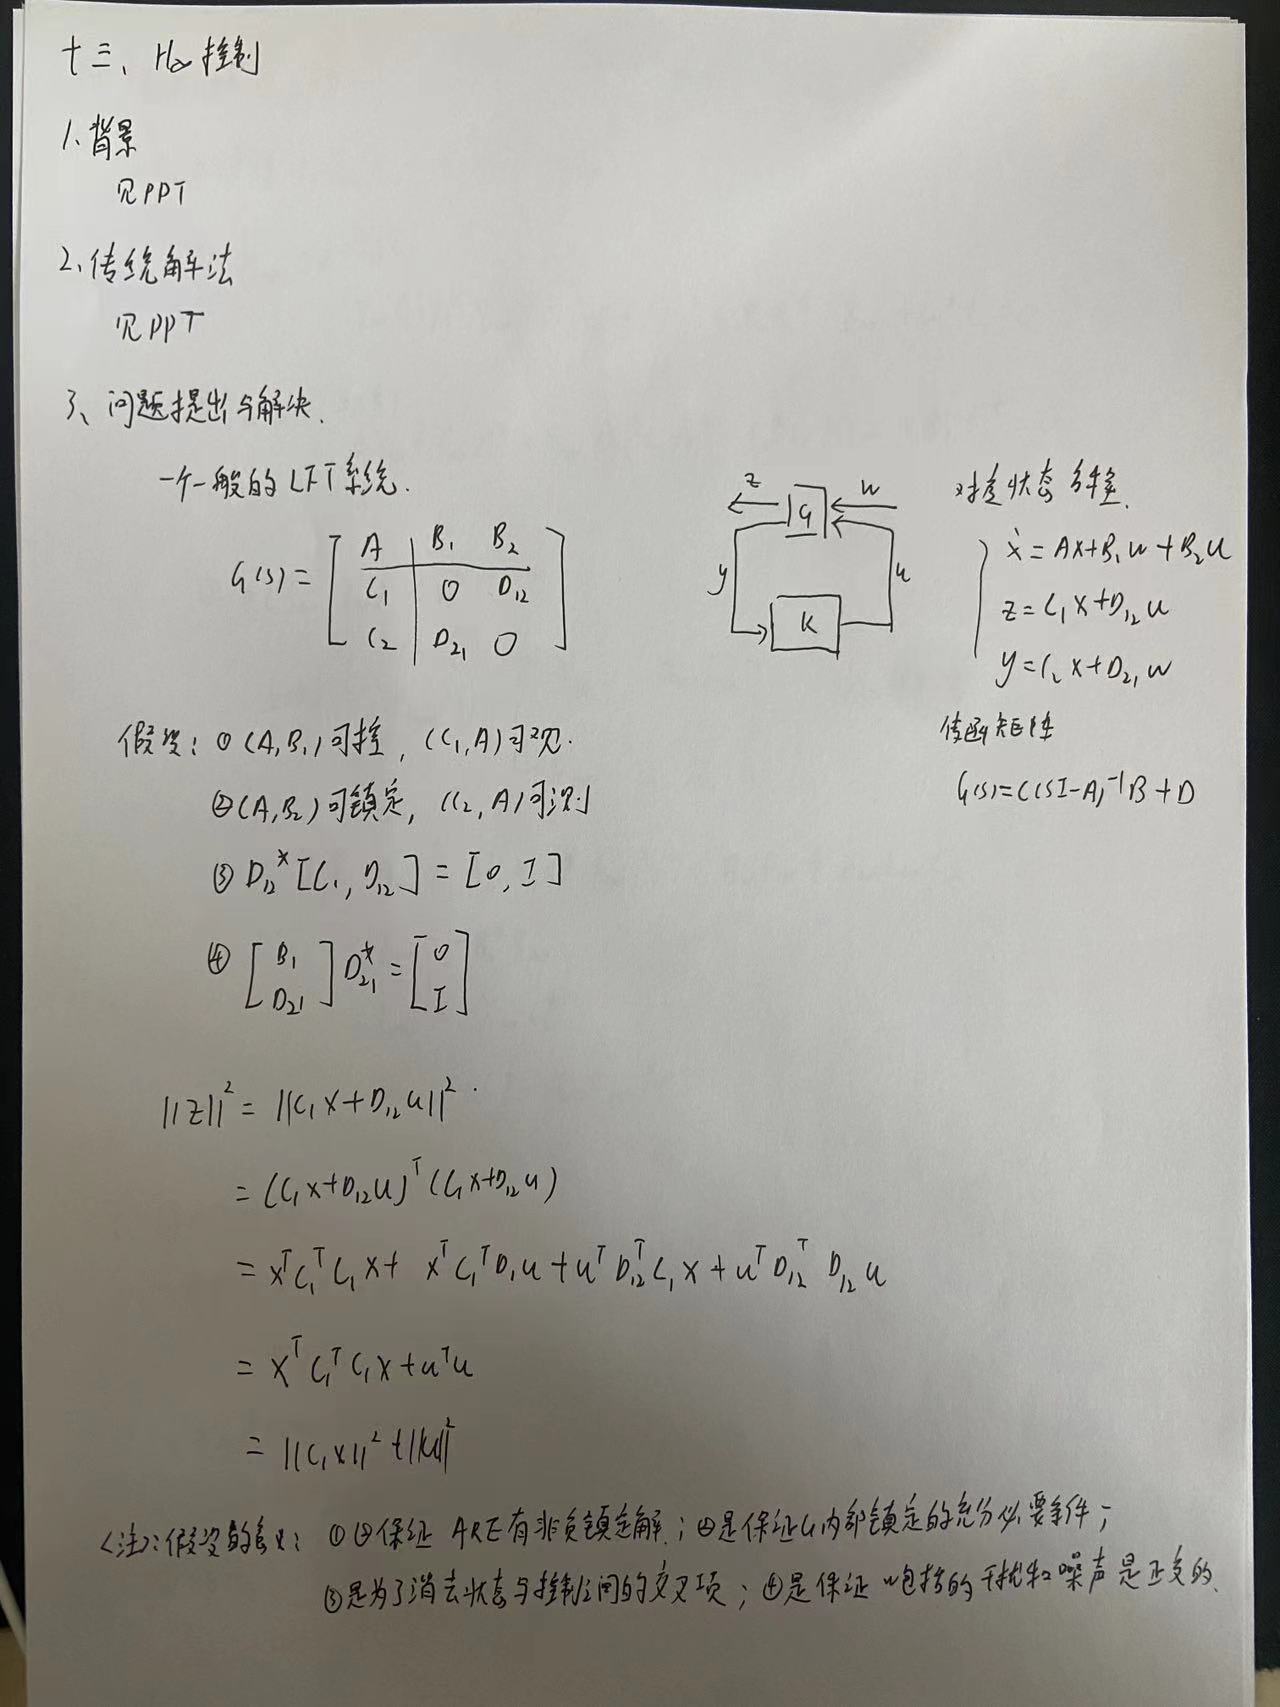 十三、H∞控制
1、背景
见PPT
2、传统解法
见PPT
3、问题提出与解决.
一个一般的LFT系统.
G(s) = [ A | B₁ B₂ ; C₁ | 0 D₁₂ ; C₂ | D₂₁ 0 ]
z G w
y K u
对应状态方程.
ẋ = Ax+B₁w+B₂u
z = C₁x+D₁₂u
y = C₂x+D₂₁w
传函矩阵
G(s)=C(sI-A)⁻¹B+D
假设: ①(A,B₁)可控, (C₁,A)可观.
②(A,B₂)可镇定, (C₂,A)可测
③ D₁₂*[C₁, D₁₂] = [0, I]
④ [ B₁ ; D₂₁ ] D₂₁* = [ 0 ; I ]
||z||² = ||C₁x+D₁₂u||².
= (C₁x+D₁₂u)ᵀ(C₁x+D₁₂u)
= xᵀC₁ᵀC₁x + xᵀC₁ᵀD₁u + uᵀD₁₂ᵀC₁x + uᵀD₁₂ᵀD₁₂u
= xᵀC₁ᵀC₁x+uᵀu
= ||C₁x||²+||u||²
<注>: 假设的意义: ①②保证 ARE有非负镇定解; ②是保证G内部镇定的充分必要条件;
③是为了消去状态与控制之间的交叉项; ④是保证w包括的干扰和噪声是正交的.